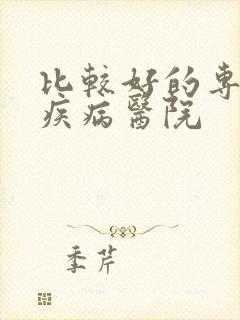 比較好的專
疾病醫院
季芹